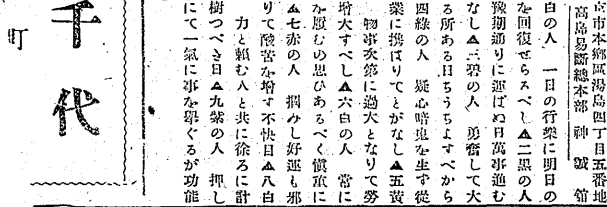 京市本郷區湯島四丁目五番地
高島易斷總本部 神誠舘
白の人 一日の行樂に明日の
を回復せらるべし▲二黒の人
豫期通りに運ばぬ日萬事進む
なし▲三碧の人 勇奮して大
る所ある日うちうちよすべから
四緑の人 疑心暗鬼を生ず從
業に携はりてとがなし▲五黄
物事次第に過大となりて勞
增大すべし▲六白の人 常に
を履むの思ひあるべく愼重に
▲七赤の人 掴みし好運も邪
りて酸苦を增す不快日▲八白
力と賴む人と共に徐ろに計
樹つべき日▲九紫の人 押し
にて一氣に事を擧ぐるが功能
千代
町